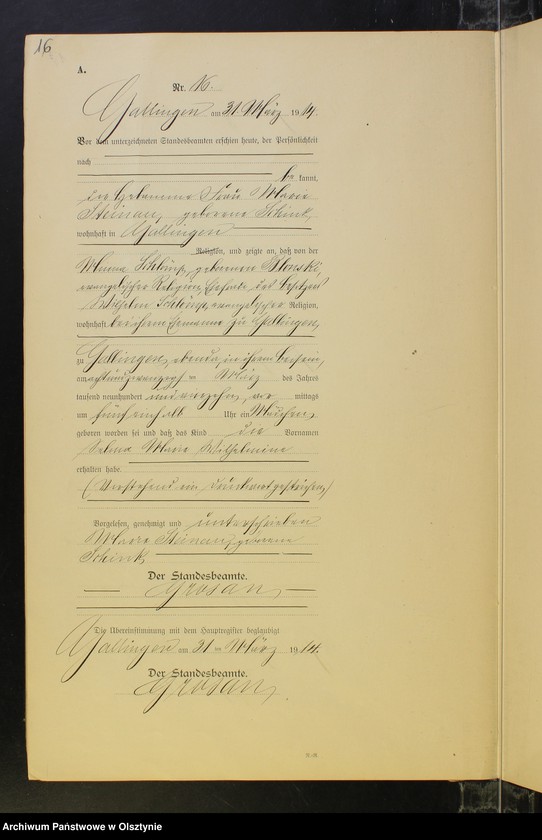 16
A.
Nr. 16.
Gallingen am 31. März 1914.
Vor dem unterzeichneten Standesbeamten erschien heute, der Persönlichkeit
nach
be kannt,
die Hebamme Frau Marie
Steinau, geborene Schink,
wohnhaft in Gallingen
Religion, und zeigte an, daß von der
geborenen
evangelischer Religion, Ehefrau des Besitzers
Wilhelm evangelischer Religion,
wohnhaft bei ihrem Ehemanne zu Gallingen,
zu Gallingen, ebenda, in ihrem Beisein,
am achtundzwanzigsten März des Jahres
tausend neunhundert und vierzehn, mittags
um fünf einhalb Uhr ein Mädchen
geboren worden sei und daß das Kind die Vornamen
Selma Marie Wilhelmine
erhalten habe.
(Vorstehend ein Druckwort gestrichen,)
Vorgelesen, genehmigt und unterschrieben
Marie Steinau, geborene
Schink
Der Standesbeamte.
Grosan
Die Übereinstimmung mit dem Hauptregister beglaubigt
Gallingen am 31. März 1914.
Der Standesbeamte.
Grosan
Archiwum Państwowe w Olsztynie